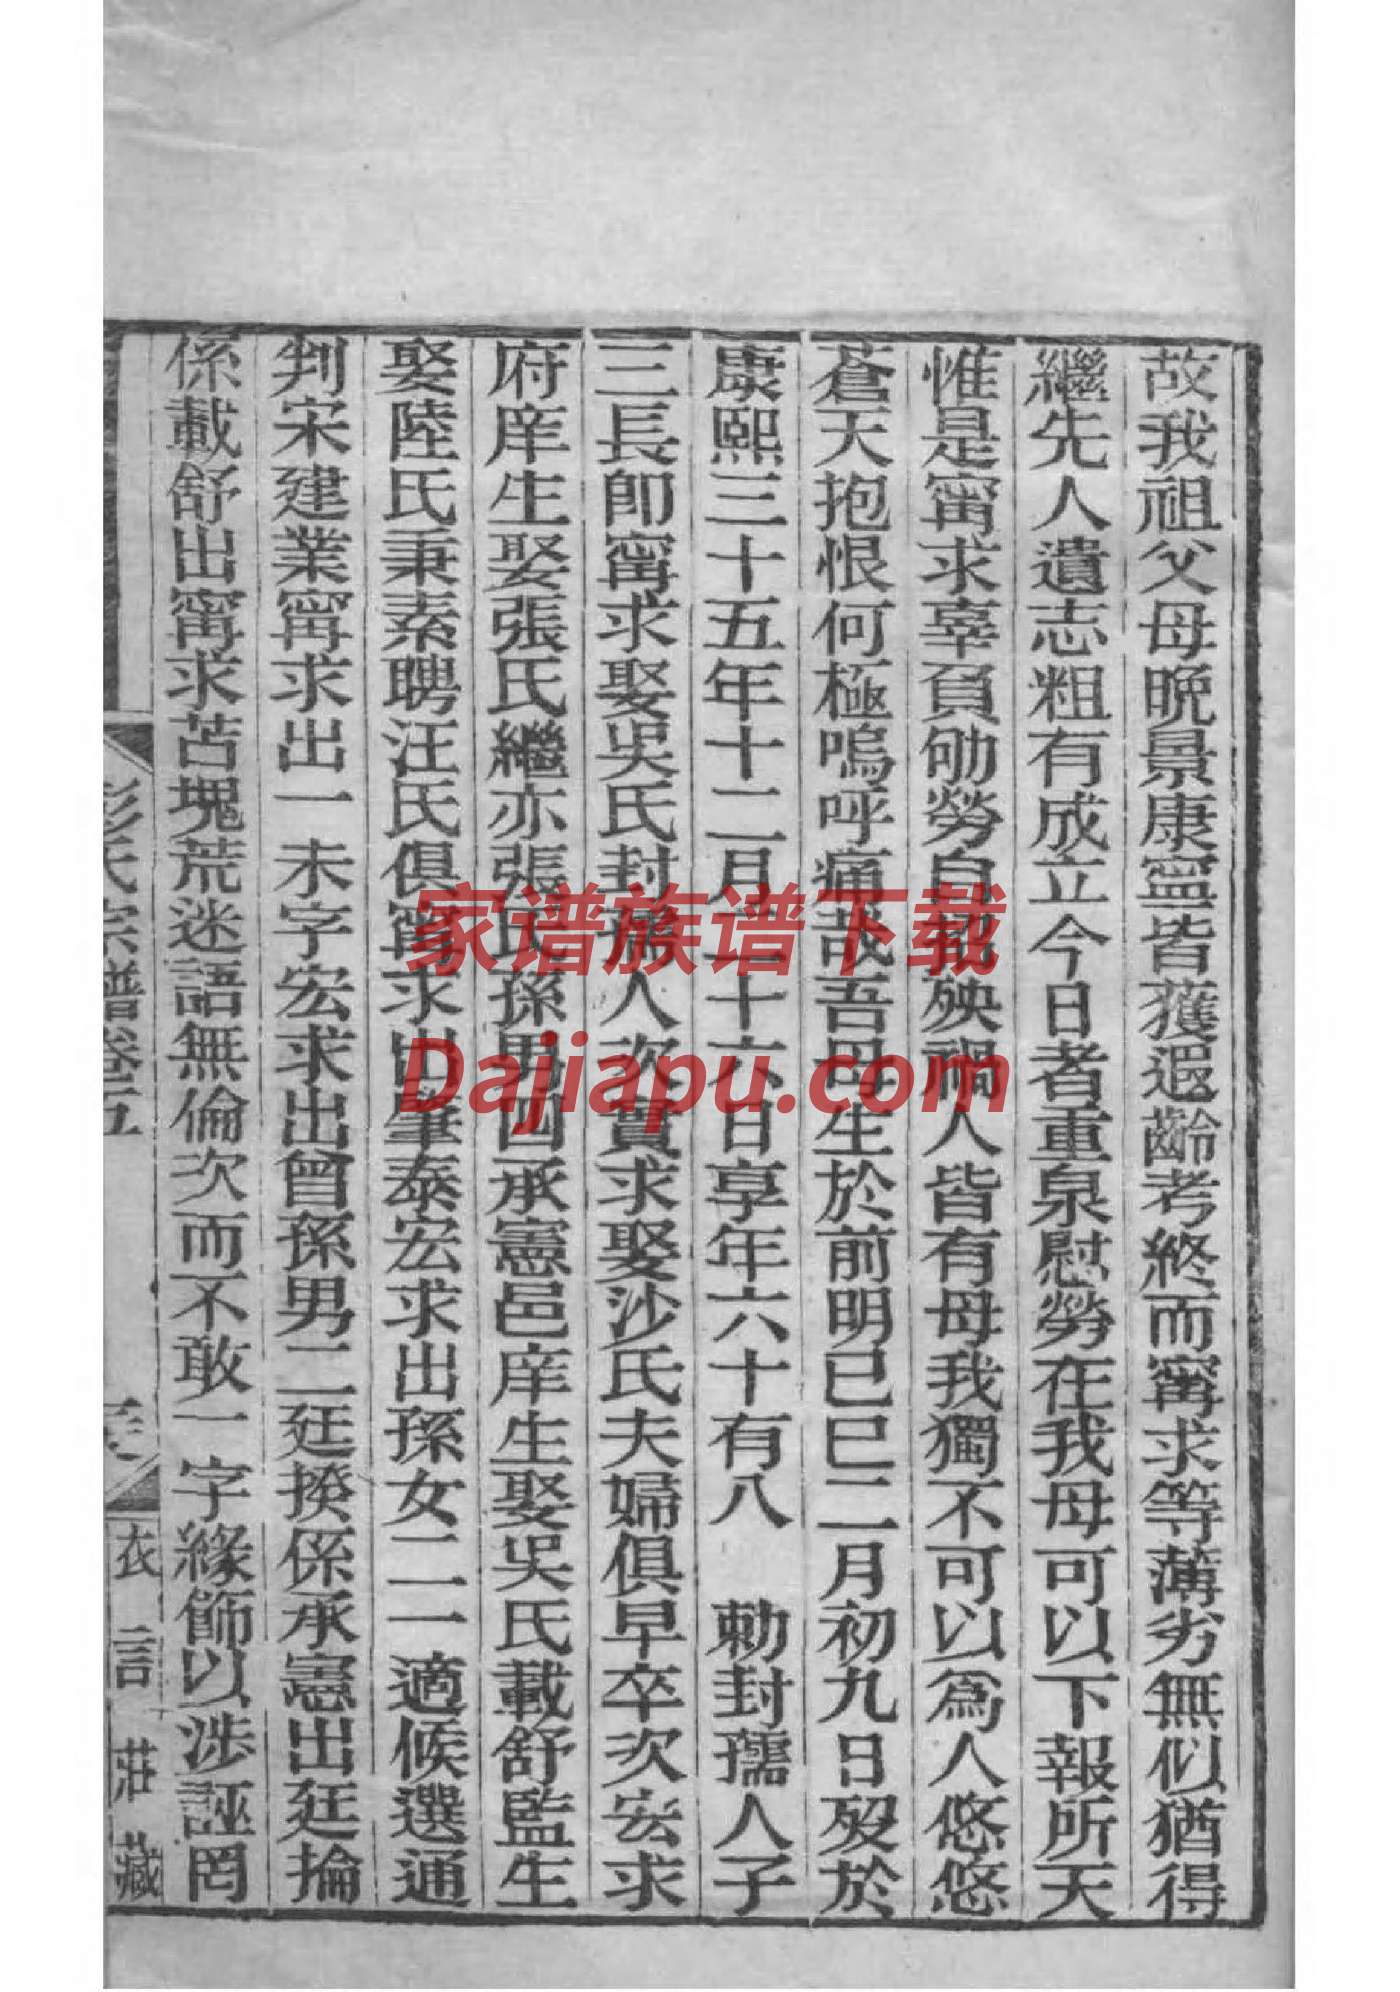 故我祖父母晩景康寧皆獲遐齡考終而甯求等薄劣無似猶得
繼先人遺志粗有成立今日者重泉慰勞在我母可以下報所天
惟是甯求辜負劬勞自招殃禍人皆有母我獨不可以爲人悠悠
蒼天抱恨何極嗚呼痛哉吾母生於前明已巳二月初九日歿於
康熙三十五年十二月二十六日享年六十有八 勅封孺人子
三長卽甯求娶吳氏封孺人次實求娶沙氏夫婦俱早卒次宏求
府庠生娶張氏繼亦張氏孫男四承憲邑庠生娶吳氏載舒監生
娶陸氏秉素聘汪氏俱甯求出肇泰宏求出孫女二一適候選通
判宋建業甯求出一未字宏求出曾孫男二廷揆係承憲出廷掄
係載舒出甯求苫塊荒迷語無倫次而不敢一字緣飾以涉誣罔
彭氏宗譜卷五
衣言莊藏
家谱族谱下载
Dajiapu.com